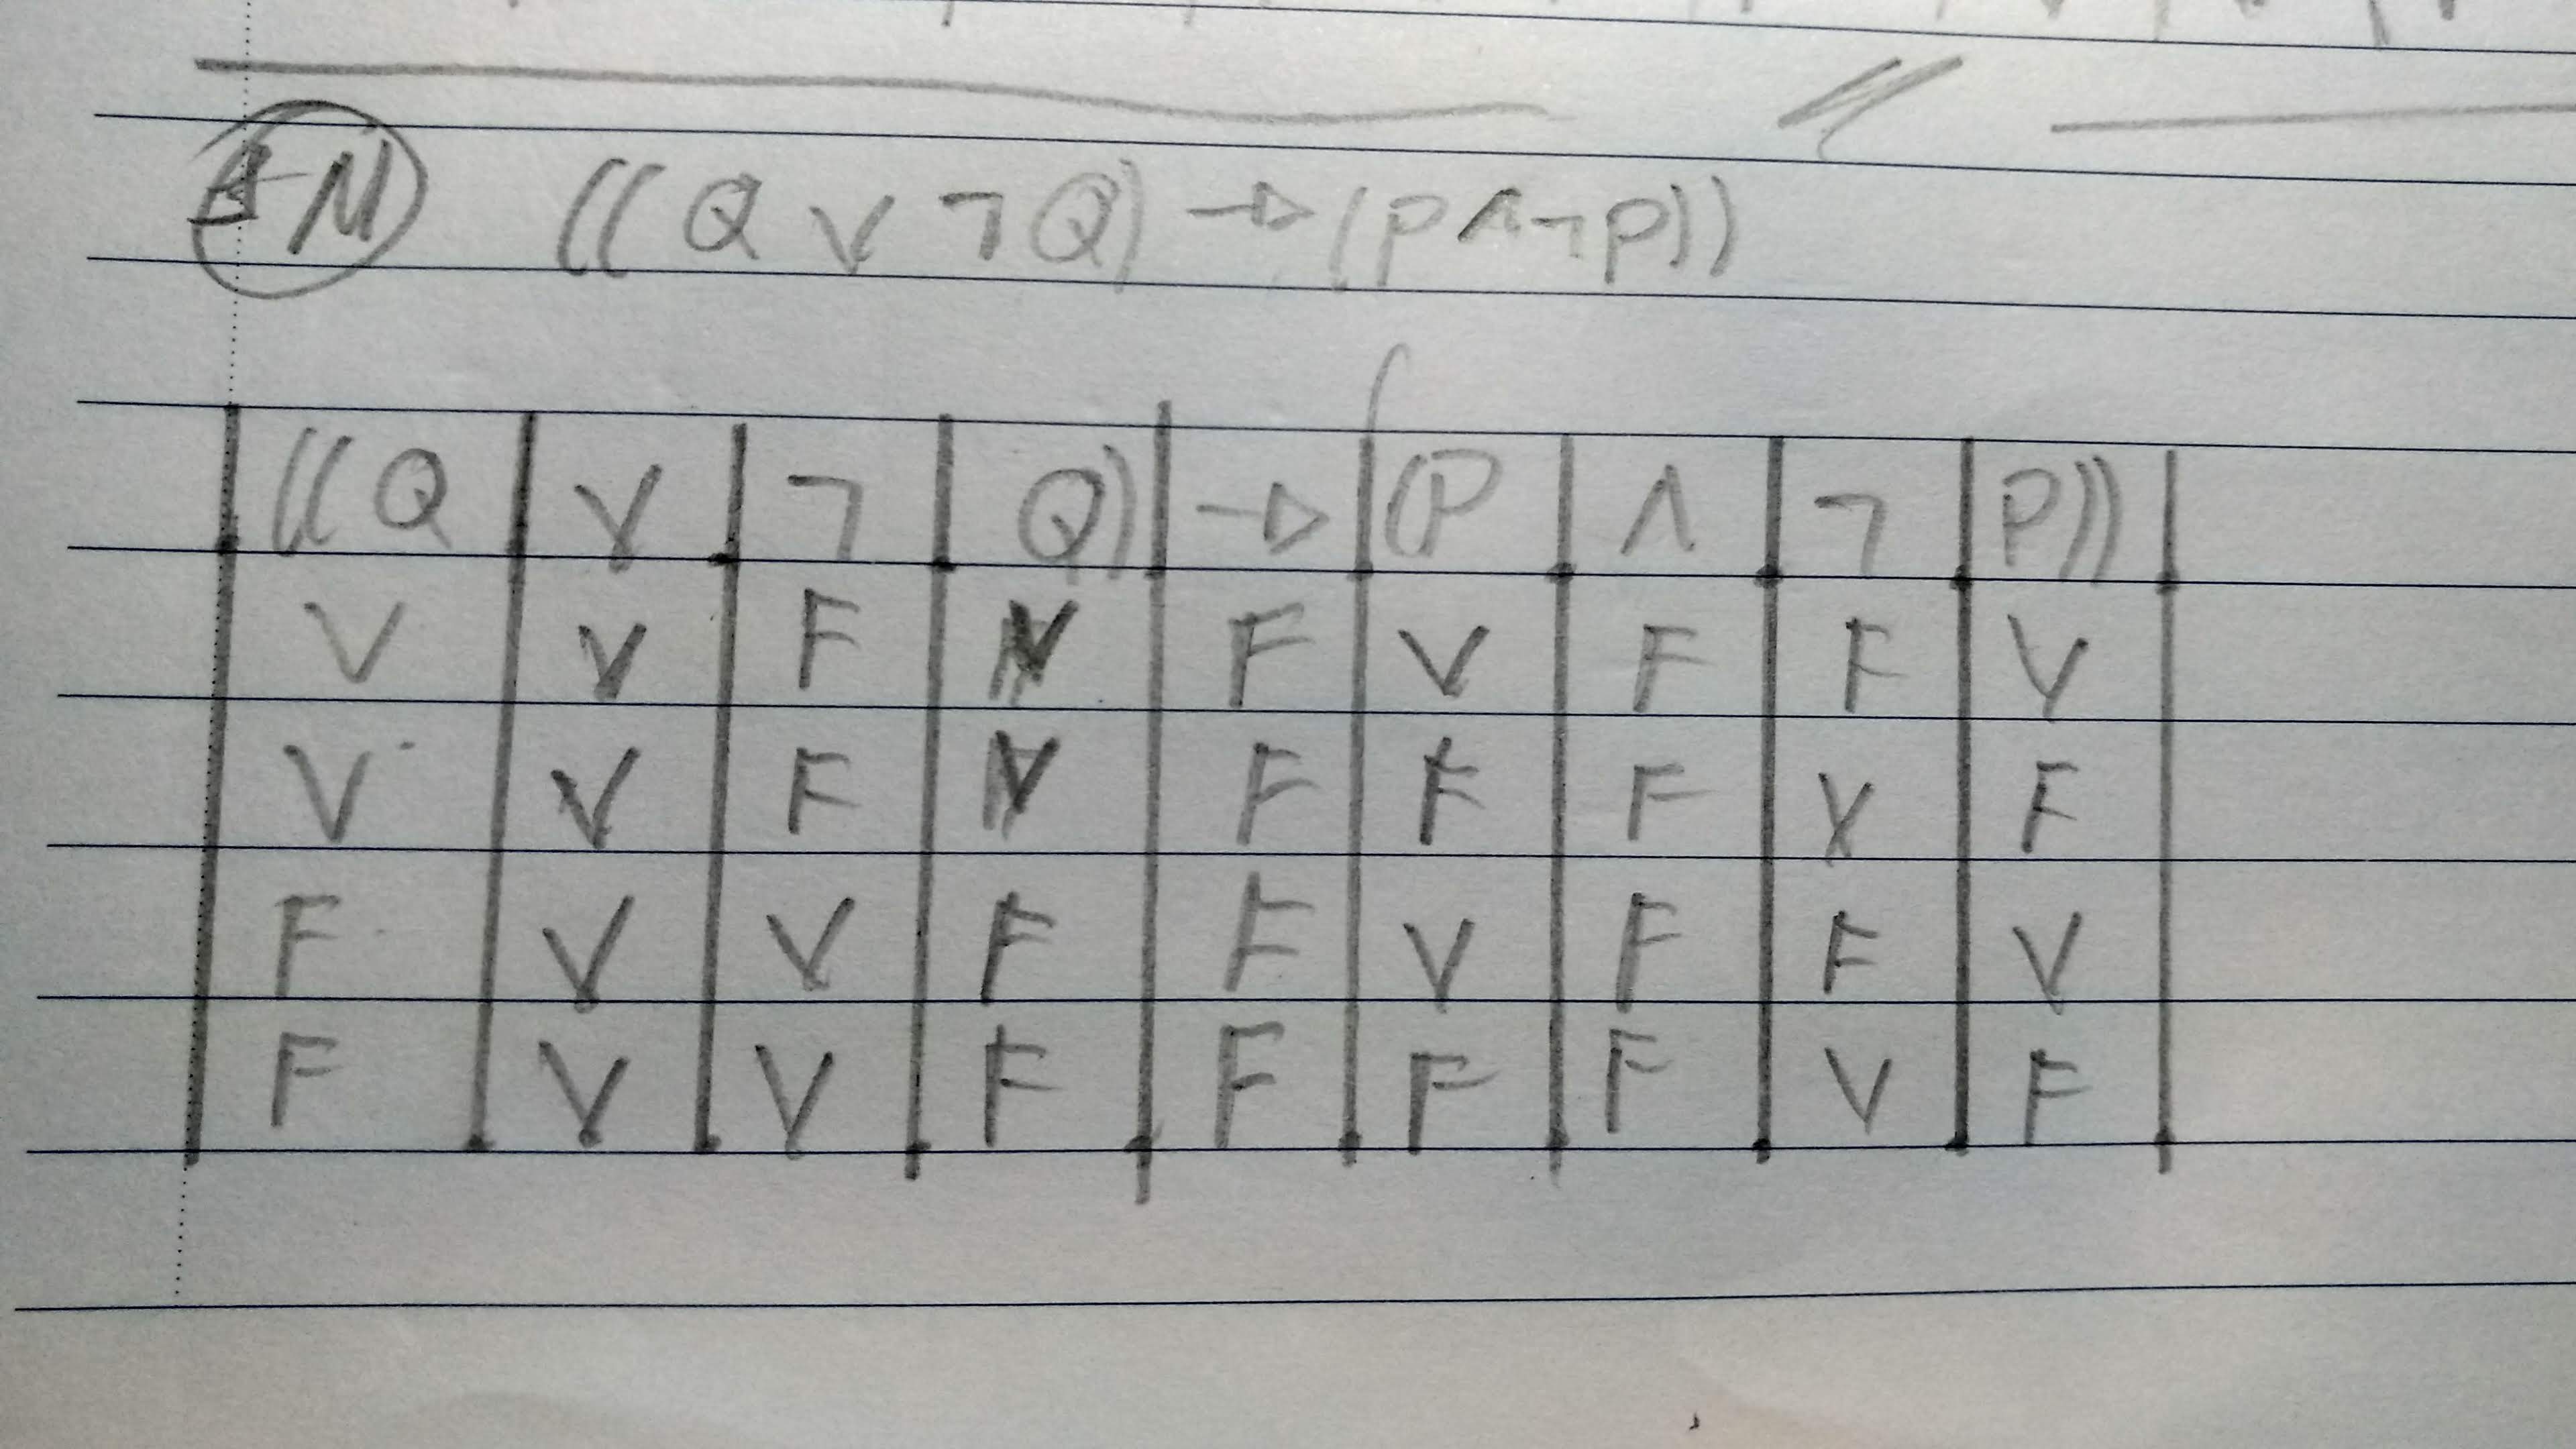 ((Q ∨ ¬ Q) → (P ∧ ¬ P))
((Q ∨ ¬ Q) → (P ∧ ¬ P))
V V F V F V F F V
V V F V F F F V F
F V V F F V F F V
F V V F F F F V F